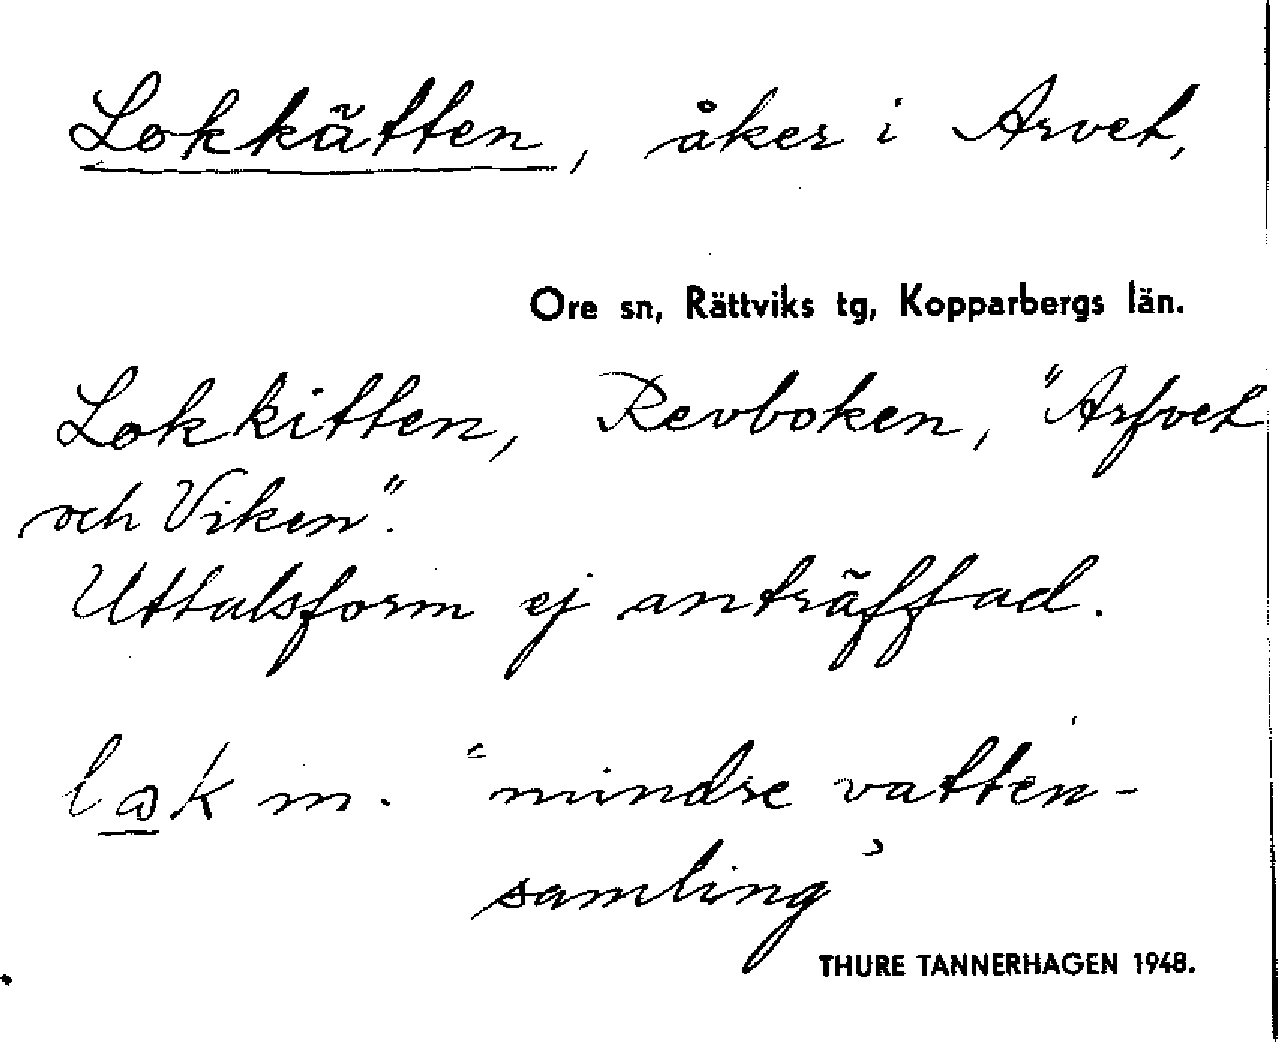 Lokkätten, åker i Arvet,
Ore sn, Rättviks tg, Kopparbergs län.
Lokkitten, Revboken, "Arfvet
och Viken".
Uttalsform ej anträffad.
lωk m. ‘mindre vatten-
samling’
THURE TANNERHAGEN 1948.